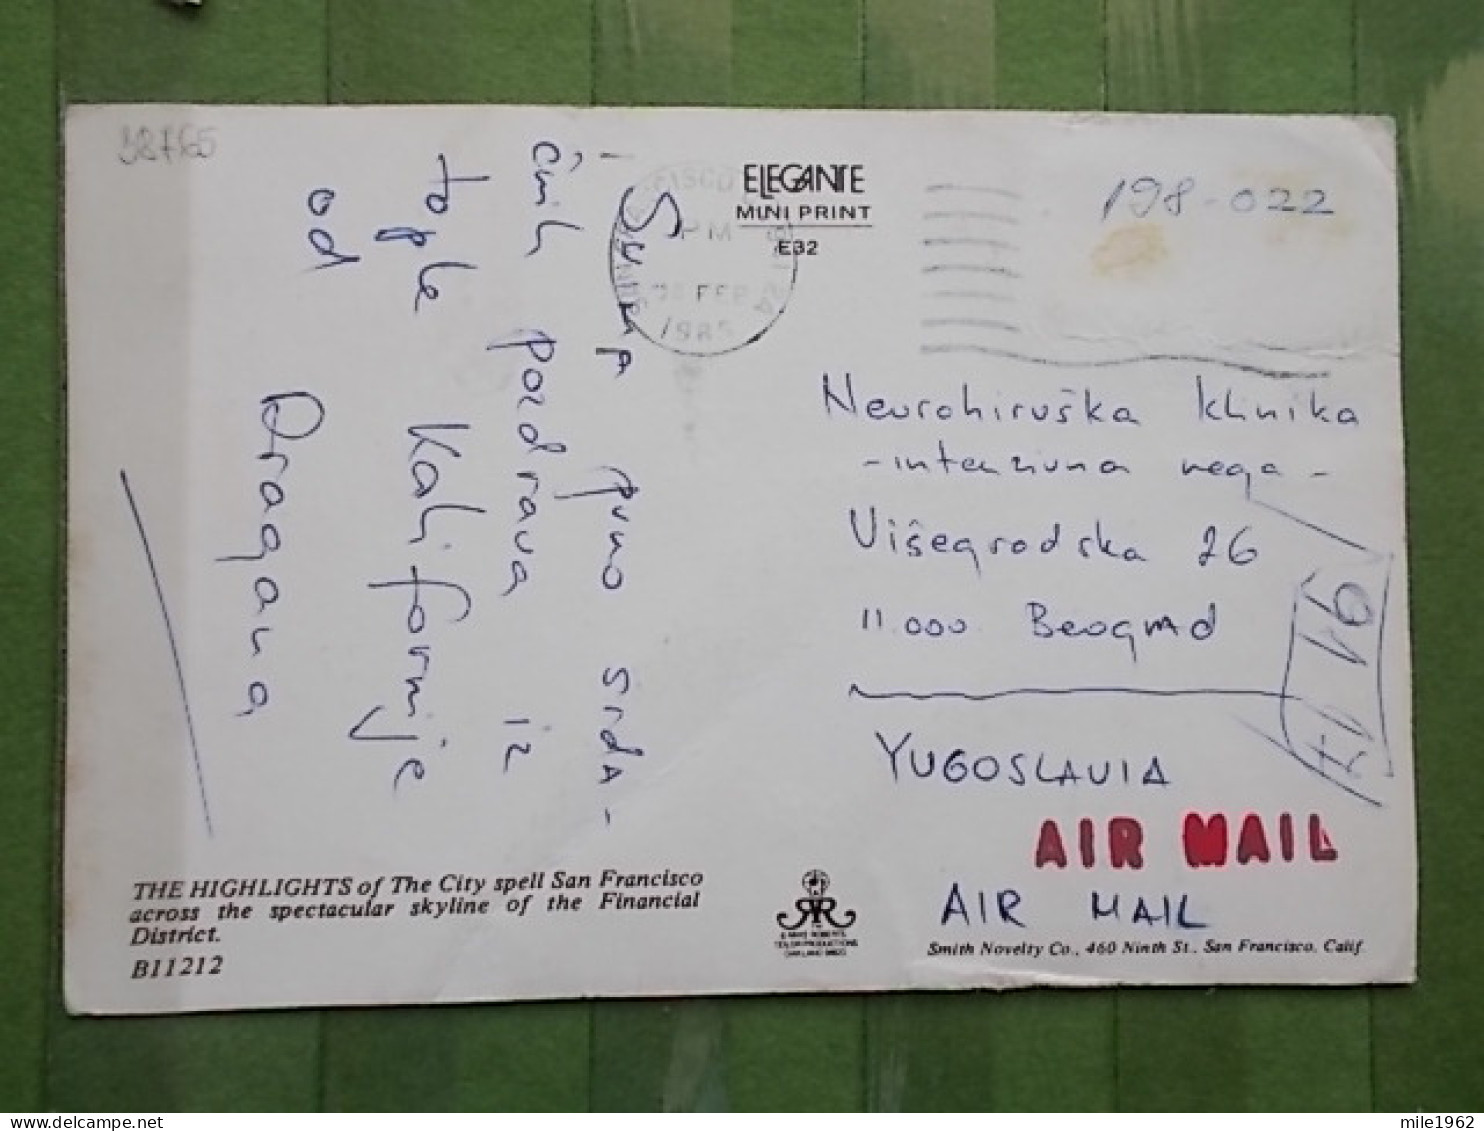 38765
ELEGANTE
MINI PRINT
E32
PM
FEB
1985
198-022
Svima puno srda-
čnih
pozdrava iz
tople Kalifornije
od
Dragana
Neurohiruška klinika
- intenzivna nega -
Višegradska 26
11.000 Beograd
YUGOSLAVIA
91 17
AIR MAIL
AIR MAIL
THE HIGHLIGHTS of The City spell San Francisco
across the spectacular skyline of the Financial
District.
B11212
Smith Novelty Co., 460 Ninth St., San Francisco, Calif.
mile1962